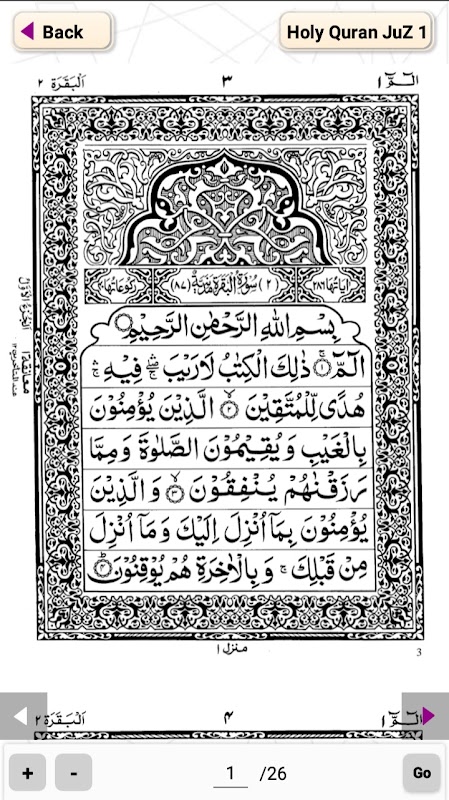 Back
Holy Quran JuZ 1
الٓمّٓ ١
٣
اَلْبَقَرَة ٢
اٰيَاتُهَا ٢٨٦
(٢) سُوْرَةُ الْبَقَرَةِ مَدَنِيَّةٌ (٨٧)
رُكُوْعَاتُهَا
بِسْمِ اللّٰهِ الرَّحْمٰنِ الرَّحِيْمِ
الٓمّٓ ۚ ذٰلِكَ الْكِتٰبُ لَا رَيْبَ ۛ فِيْهِ ۛ
هُدًى لِّلْمُتَّقِيْنَ ۙ ٢ الَّذِيْنَ يُؤْمِنُوْنَ
بِالْغَيْبِ وَ يُقِيْمُوْنَ الصَّلٰوةَ وَ مِمَّا
رَزَقْنٰهُمْ يُنْفِقُوْنَ ۙ ٣ وَ الَّذِيْنَ
يُؤْمِنُوْنَ بِمَاۤ اُنْزِلَ اِلَيْكَ وَ مَاۤ اُنْزِلَ
مِنْ قَبْلِكَ ۚ وَ بِالْاٰخِرَةِ هُمْ يُوْقِنُوْنَ ؕ ٤
اَلْجُزْءُ الْاَوَّلُ
معانقة ١
منزل ١
3
الٓمّٓ ١
٤
اَلْبَقَرَة ٢
+
-
1 /26
Go